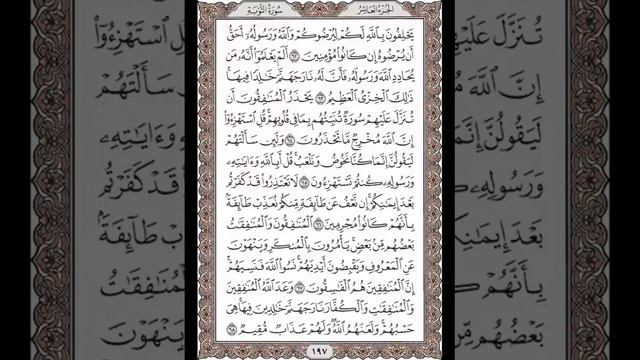 الجزء العاشر
سورة التوبة
يَحْلِفُونَ بِٱللَّهِ لَكُمْ لِيُرْضُوكُمْ وَٱللَّهُ وَرَسُولُهُۥٓ أَحَقُّ
أَن يُرْضُوهُ إِن كَانُوا۟ مُؤْمِنِينَ ٦٢ أَلَمْ يَعْلَمُوٓا۟ أَنَّهُۥ مَن
يُحَادِدِ ٱللَّهَ وَرَسُولَهُۥ فَأَنَّ لَهُۥ نَارَ جَهَنَّمَ خَٰلِدًا فِيهَا
ذَٰلِكَ ٱلْخِزْىُ ٱلْعَظِيمُ ٦٣ يَحْذَرُ ٱلْمُنَٰفِقُونَ أَن
تُنَزَّلَ عَلَيْهِمْ سُورَةٌ تُنَبِّئُهُم بِمَا فِى قُلُوبِهِمْ قُلِ ٱسْتَهْزِءُوٓا۟
إِنَّ ٱللَّهَ مُخْرِجٌ مَّا تَحْذَرُونَ ٦٤ وَلَئِن سَأَلْتَهُمْ
لَيَقُولُنَّ إِنَّمَا كُنَّا نَخُوضُ وَنَلْعَبُ قُلْ أَبِٱللَّهِ وَءَايَٰتِهِۦ
وَرَسُولِهِۦ كُنتُمْ تَسْتَهْزِءُونَ ٦٥ لَا تَعْتَذِرُوا۟ قَدْ كَفَرْتُم
بَعْدَ إِيمَٰنِكُمْ إِن نَّعْفُ عَن طَآئِفَةٍ مِّنكُمْ نُعَذِّبْ طَآئِفَةًۢ
بِأَنَّهُمْ كَانُوا۟ مُجْرِمِينَ ٦٦ ٱلْمُنَٰفِقُونَ وَٱلْمُنَٰفِقَٰتُ
بَعْضُهُم مِّنۢ بَعْضٍ يَأْمُرُونَ بِٱلْمُنكَرِ وَيَنْهَوْنَ
عَنِ ٱلْمَعْرُوفِ وَيَقْبِضُونَ أَيْدِيَهُمْ نَسُوا۟ ٱللَّهَ فَنَسِيَهُمْ
إِنَّ ٱلْمُنَٰفِقِينَ هُمُ ٱلْفَٰسِقُونَ ٦٧ وَعَدَ ٱللَّهُ ٱلْمُنَٰفِقِينَ
وَٱلْمُنَٰفِقَٰتِ وَٱلْكُفَّارَ نَارَ جَهَنَّمَ خَٰلِدِينَ فِيهَا هِىَ
حَسْبُهُمْ وَلَعَنَهُمُ ٱللَّهُ وَلَهُمْ عَذَابٌ مُّقِيمٌ ٦٨
١٩٧